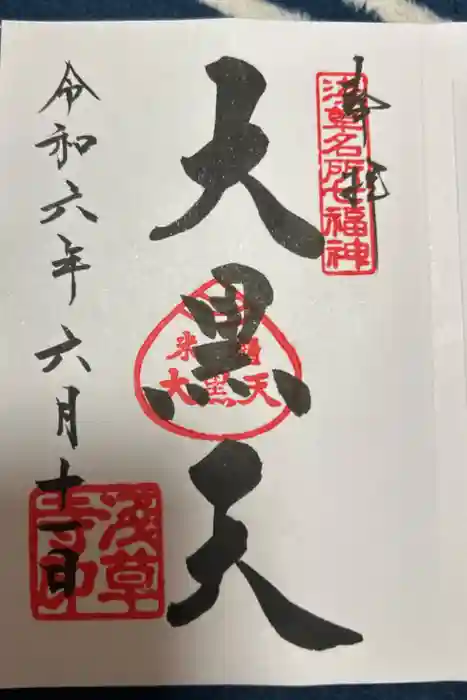 奉拝
浅草名所七福神
大黒天
米
大黒天
令和六年六月十一日
浅草
寺印